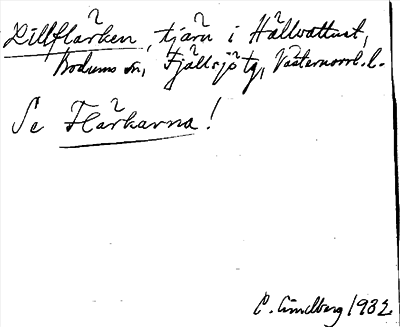 Lillflärken, tjärn i Hällvattnet,
Bodums sn, Fjällsjö tg, Västernorrl. l.
Se Flärkarna!
C. Lindberg 1932